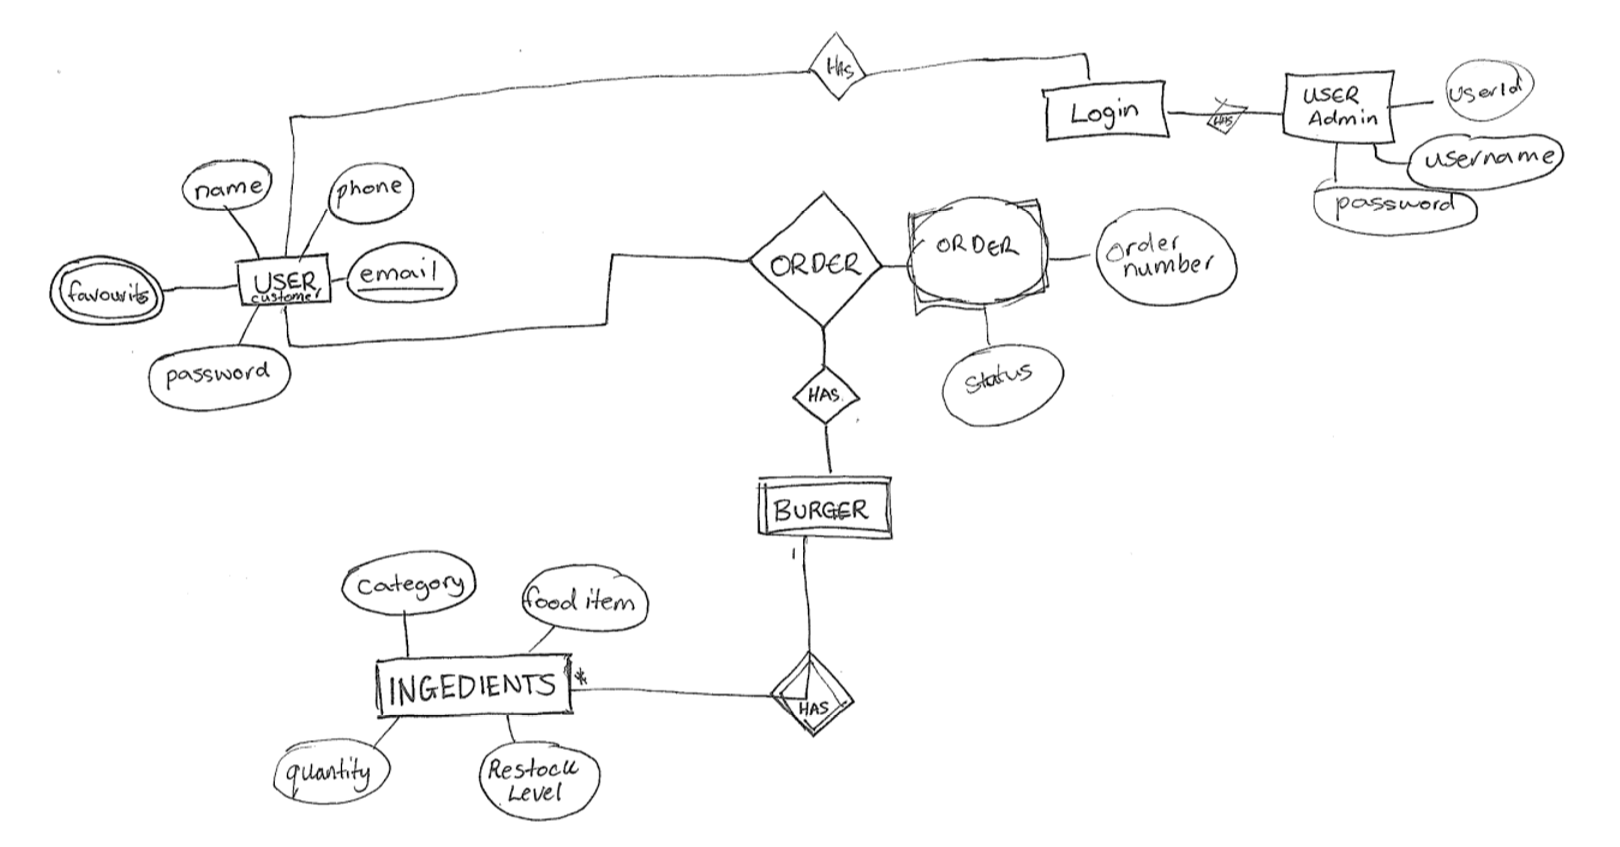 HAS
Login
HAS
USER
Admin
userId
username
password
name
phone
favourits
USER
customer
email
password
ORDER
ORDER
Order
number
Status
HAS
BURGER
1
Category
food item
INGEDIENTS
*
HAS
quantity
Restock
Level